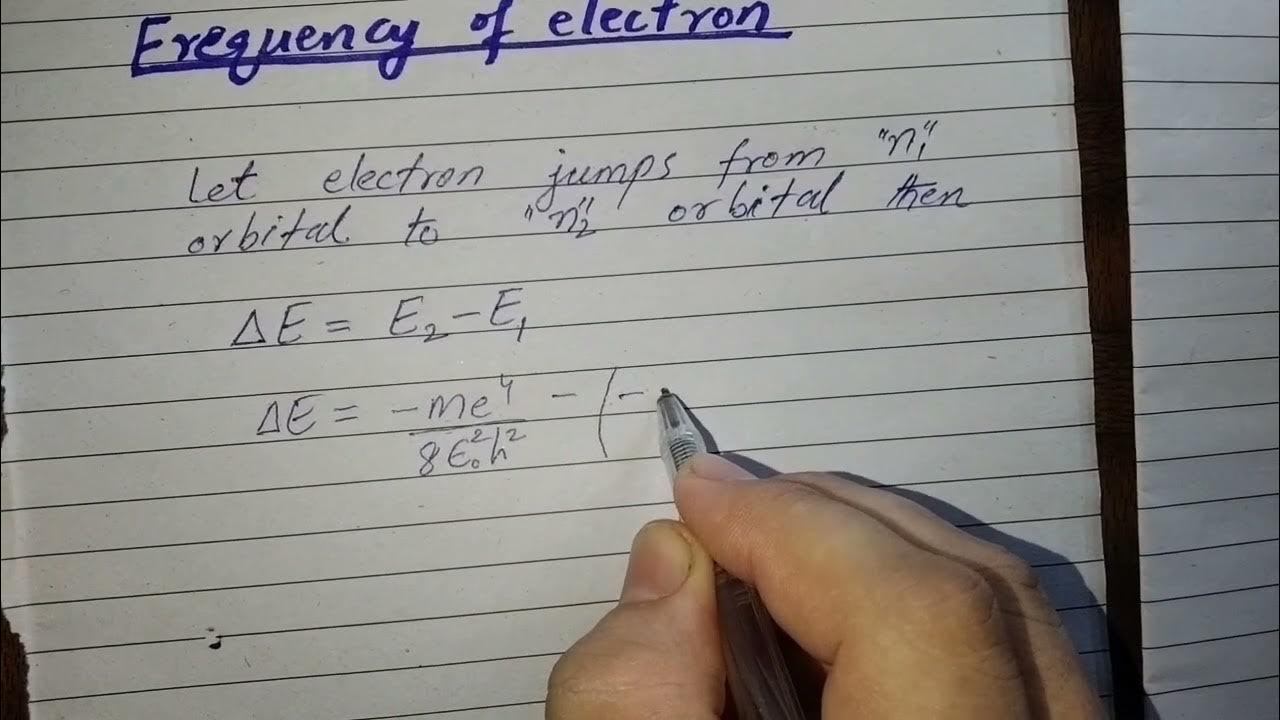 Frequency of electron
Let electron jumps from "n₁"
orbital to "n₂" orbital then
ΔE = E₂ - E₁
ΔE = -me⁴ / 8ϵ₀²h² - ( -